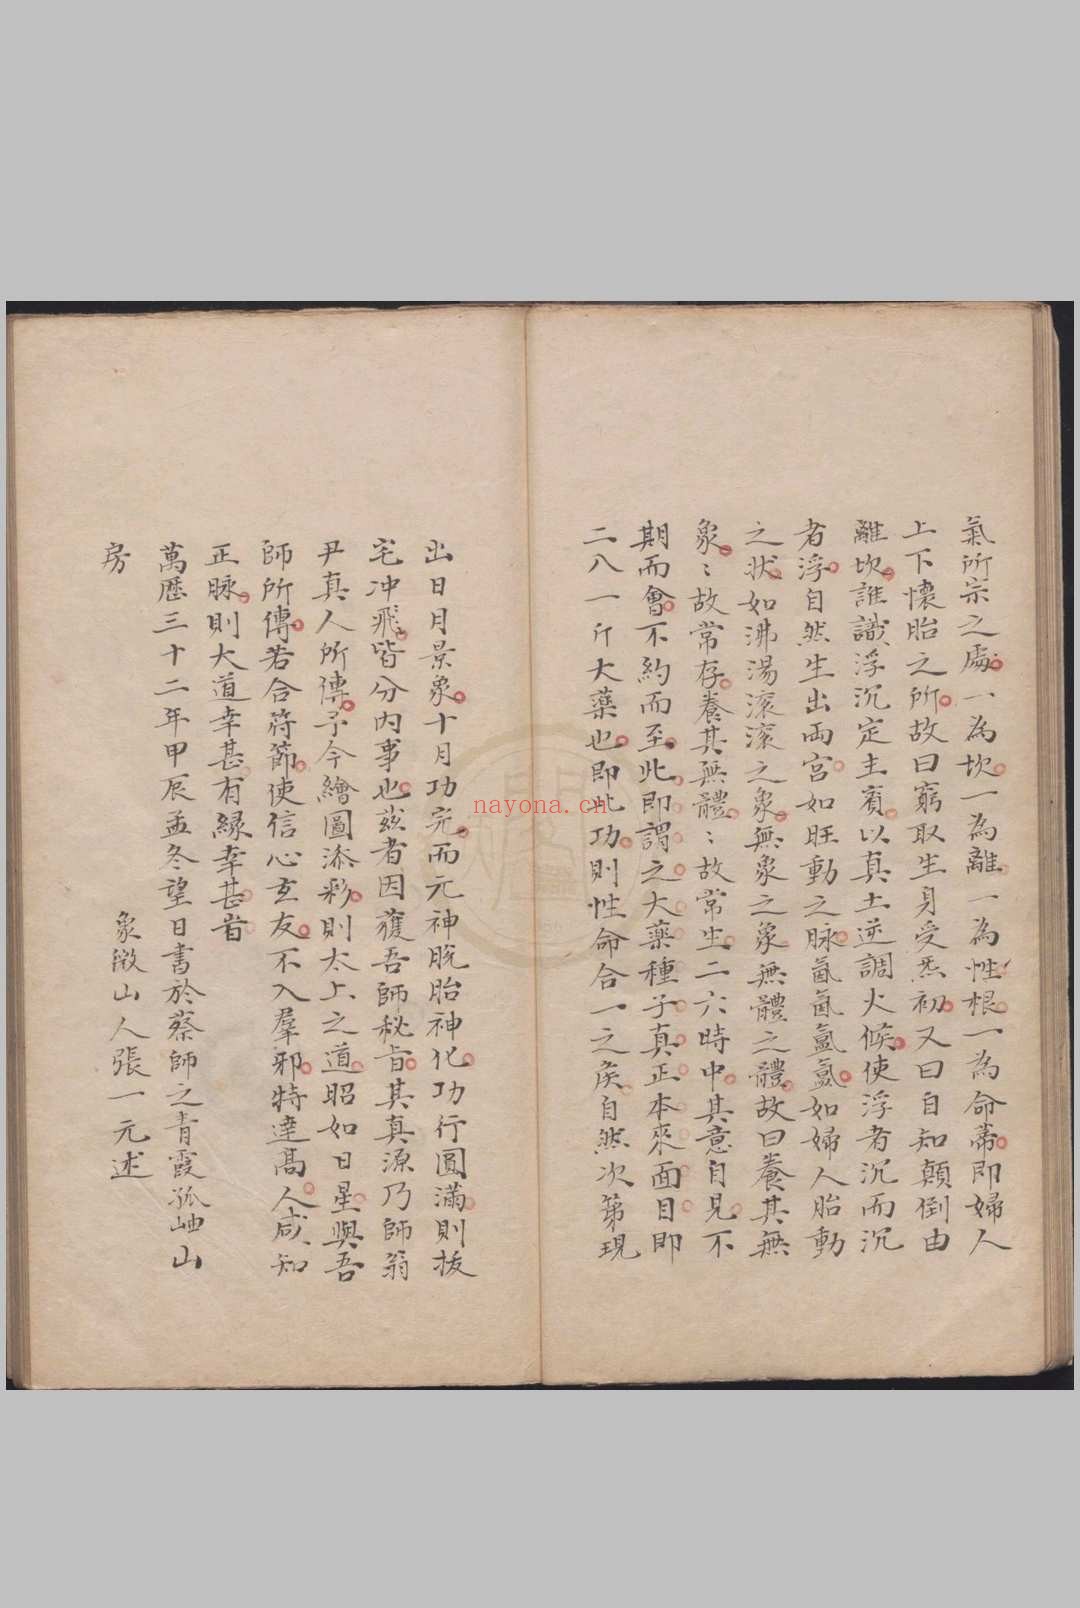 氣所宗之處一為坎一為離一為性根一為命蒂即婦人
上下懷胎之所故曰窮取生身受炁初又曰自知顛倒由
離坎誰識浮沉定主賓以真土逆調火候使浮者沉而沉
者浮自然生出両宮如旺動之脉氤氤氳氳如婦人胎動
之狀如沸湯滚滚之象無象之象無體之體故曰養其無
象〻故常存養其無體〻故常生二六時中其意自見不
期而會不約而至此即謂之大藥種子真正本來面目即
二八一斤大藥也即此功則性命合一之矦自然次第現
出日月景象十月功完而元神脫胎神化功行圓滿則拔
宅冲飛皆分内事也茲者因獲吾師秘旨其真源乃師翁
尹真人所傳予今繪圖添彩則太上之道昭如日星與吾
師所傳若合符節使信心玄友不入羣邪特達髙人咸知
正脉則大道幸甚有緣幸甚旹
萬歴三十二年甲辰孟冬望日書於蔡師之青霞孤岫山
房
象微山人張一元述
nayona.cn